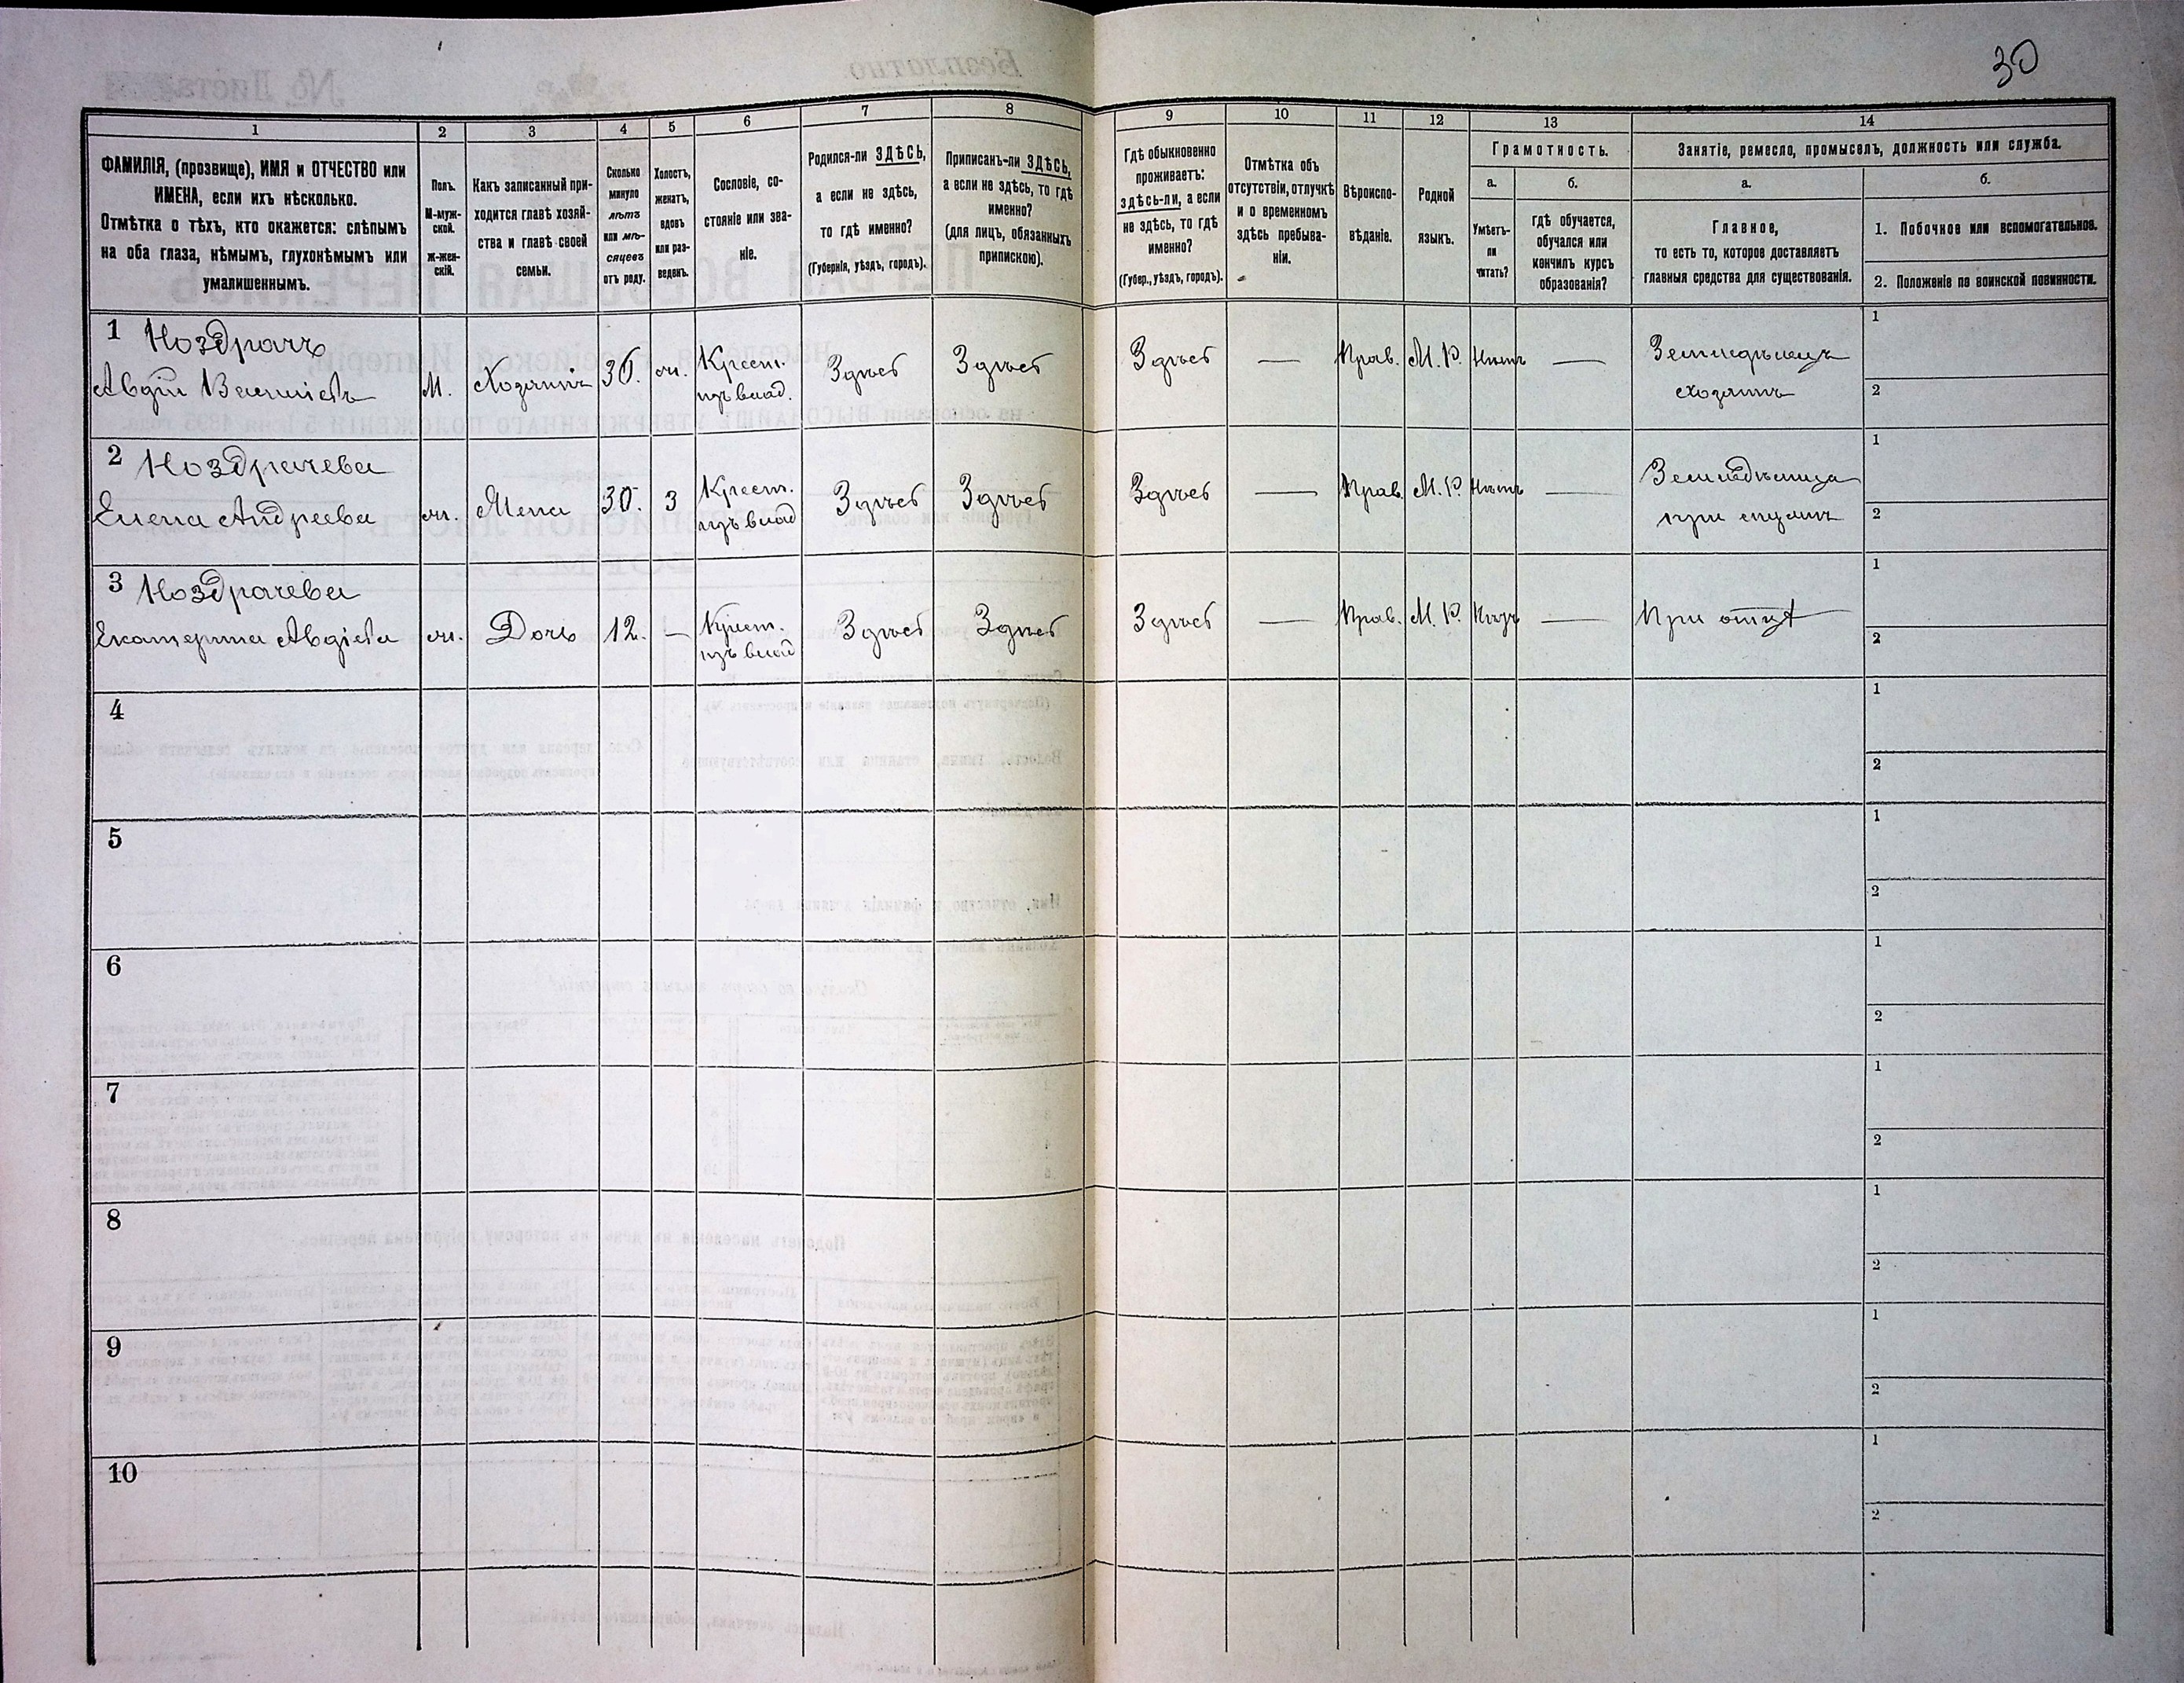 30
1
2
3
4
5
6
7
8
9
10
11
12
13
14
ФАМИЛІЯ, (прозвище), ИМЯ и ОТЧЕСТВО или
ИМЕНА, если ихъ нѣсколько.
Отмѣтка о тѣхъ, кто окажется: слѣпымъ
на оба глаза, нѣмымъ, глухонѣмымъ или
умалишеннымъ.
Полъ.
М-муж-
ской.
Ж-жен-
скій.
Какъ записанный при-
ходится главѣ хозяй-
ства и главѣ своей
семьи.
Сколько
минуло
лѣтъ
или мѣ-
сяцевъ
отъ роду.
Холостъ,
женатъ,
вдовъ
или раз-
веденъ.
Сословіе, со-
стояніе или зва-
ніе.
Родился-ли ЗДѢСЬ,
а если не здѣсь,
то гдѣ именно?
(Губернія, уѣздъ, городъ).
Приписанъ-ли ЗДѢСЬ,
а если не здѣсь, то гдѣ
именно?
(для лицъ, обязанныхъ
припискою).
Гдѣ обыкновенно
проживаетъ:
здѣсь-ли, а если
не здѣсь, то гдѣ
именно?
(Губер., уѣздъ, городъ).
Отмѣтка объ
отсутствіи, отлучкѣ
и о временномъ
здѣсь пребыва-
ніи.
Вѣроиспо-
вѣданіе.
Родной
языкъ.
Грамотность.
а.
Умѣетъ-
ли
читать?
б.
гдѣ обучается,
обучался или
кончилъ курсъ
образованія?
Занятіе, ремесло, промыселъ, должность или служба.
а.
Главное,
то есть то, которое доставляетъ
главныя средства для существованія.
б.
1. Побочное или вспомогательное.
2. Положеніе по воинской повинности.
1 Ноздрачъ
Авдій
М.
Хозяинъ
36.
ж.
Крест.
изъ влад.
Здѣсь
Здѣсь
Здѣсь
—
Прав.
М. Р.
Нѣтъ
—
Земледѣлецъ
хозяинъ
1
2
2 Ноздрачева
Елена Андреева
ж.
Жена
30.
З
Крест.
изъ влад
Здѣсь
Здѣсь
Здѣсь
—
Прав.
М. Р.
Нѣтъ
—
Земледѣлица
при
1
2
3 Ноздрачева
Екатерина Авдіева
ж.
Дочь
12.
—
Крест.
изъ влад
Здѣсь
Здѣсь
Здѣсь
—
Прав.
М. Р.
Нѣтъ
—
При отцѣ
1
2
4
1
2
5
1
2
6
1
2
7
1
2
8
1
2
9
1
2
10
1
2